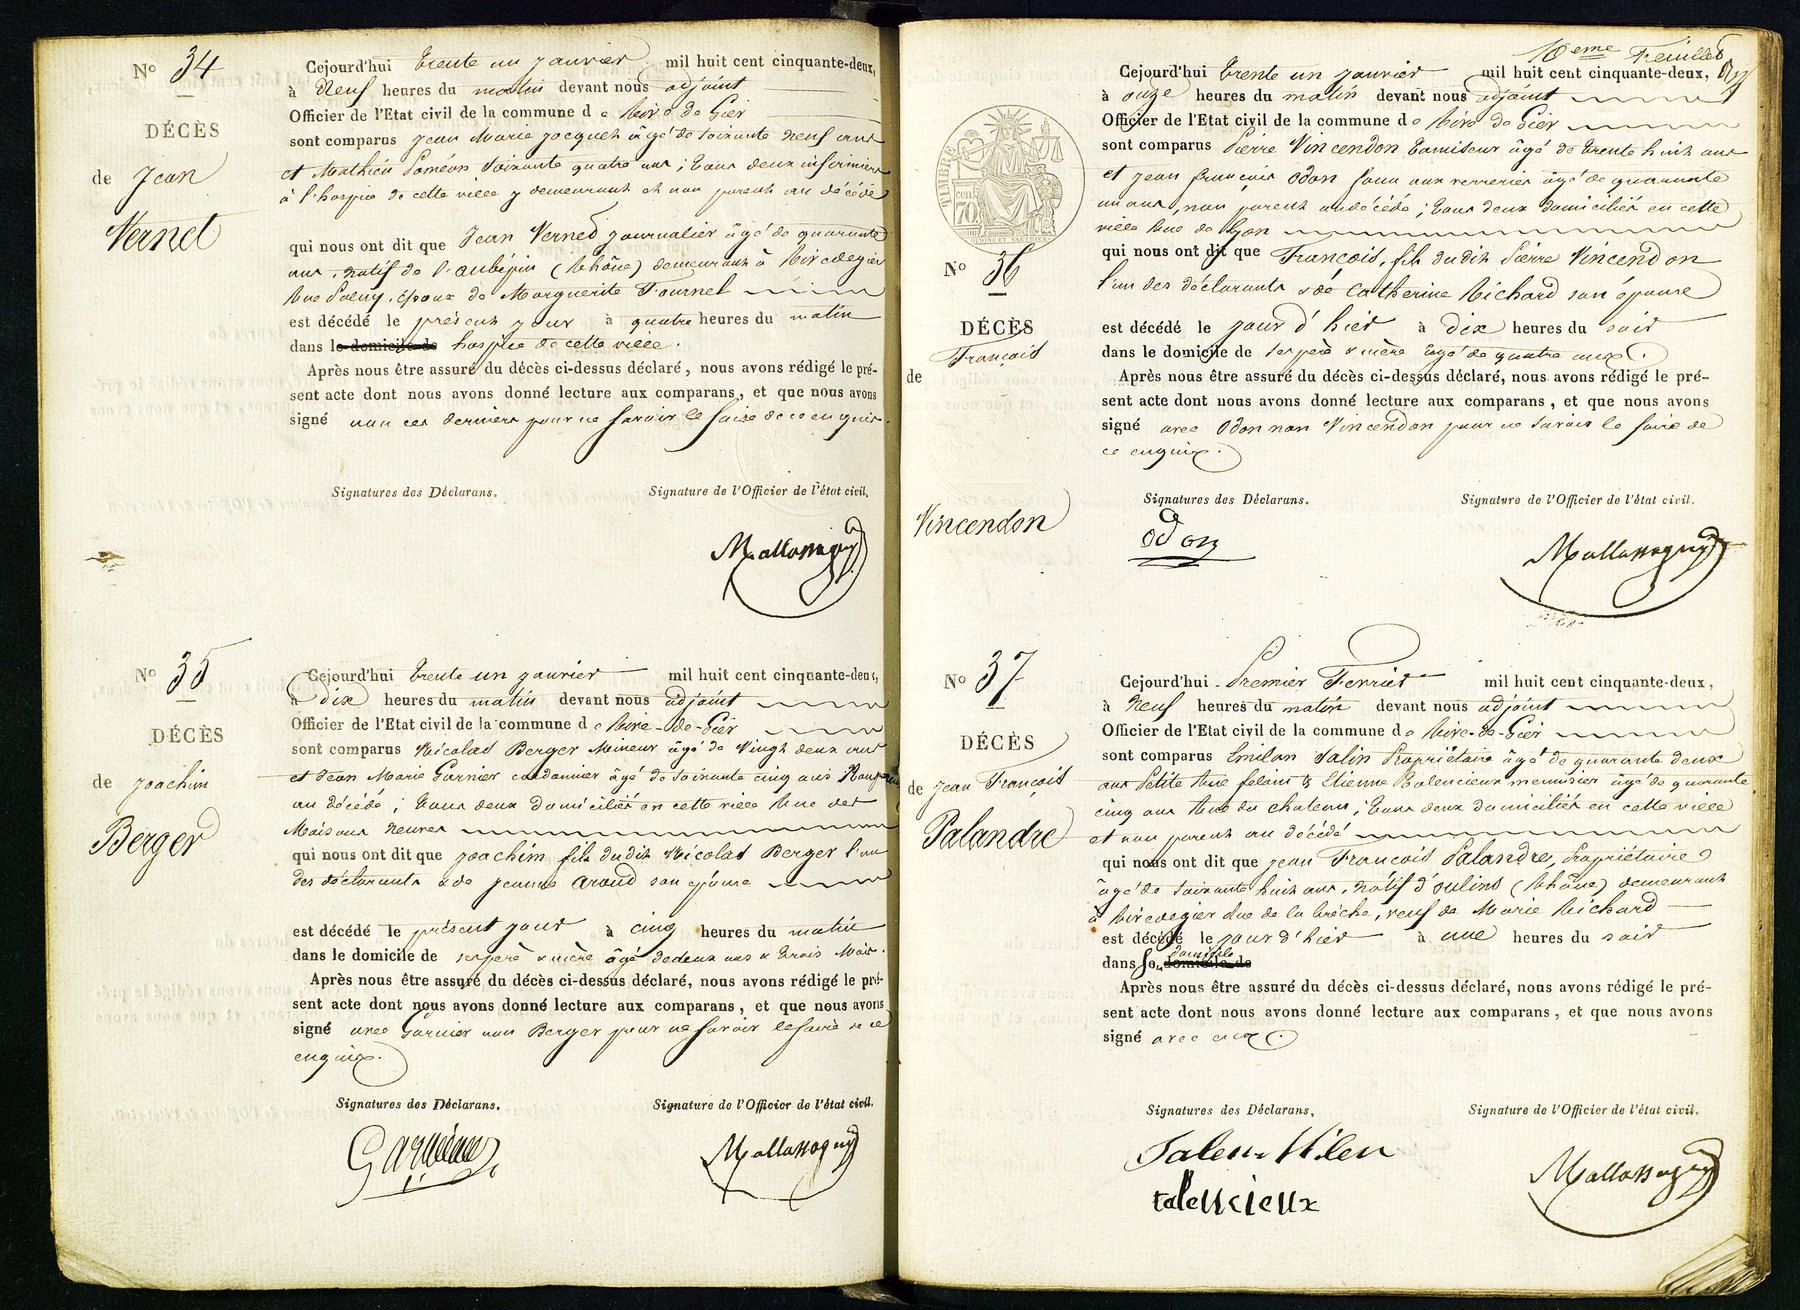 No 34
DÉCÈS
de Jean
Vernet
Cejourd'hui trente un janvier mil huit cent cinquante-deux,
à Neuf heures du matin devant nous adjoint
Officier de l'Etat civil de la commune de Rive de Gier
sont comparus Jean Marie Jacquet âgé de soixante neuf ans
et Mathieu soixante quatre ans ; tous deux infirmiers
à l'hospice de cette ville y demeurant et non parent au décédé
qui nous ont dit que Jean Vernet journalier âgé de quarante
ans, natif de l'aubépin (Rhône) demeurant à Rivedegier
Rue époux de Marguerite Fournel
est décédé le présent jour à quatre heures du matin
dans le domicile de hospice de cette ville.
Après nous être assuré du décès ci-dessus déclaré, nous avons rédigé le pré-
sent acte dont nous avons donné lecture aux comparans, et que nous avons
signé non ces derniers pour ne savoir le faire de ce enquis.
Signatures des Déclarans.
Signature de l'Officier de l'état civil.
No 35
DÉCÈS
de Joachim
Berger
Cejourd'hui trente un janvier mil huit cent cinquante-deux,
à Dix heures du matin devant nous adjoint
Officier de l'Etat civil de la commune de Rive-de-Gier
sont comparus Nicolas Berger Mineur âgé de Vingt deux ans
et Jean Marie Garnier cordonnier âgé de soixante cinq ans Non parent
au décédé ; tous deux domiciliés en cette ville Rue des
Maisons neuves
qui nous ont dit que Joachim fils dudit Nicolas Berger l'un
des déclarants & de Jeanne Aroud son épouse
est décédé le présent jour à cinq heures du matin
dans le domicile de ses père & mère âgé de deux ans & trois Mois.
Après nous être assuré du décès ci-dessus déclaré, nous avons rédigé le pré-
sent acte dont nous avons donné lecture aux comparans, et que nous avons
signé avec Garnier non Berger pour ne savoir le faire de ce
enquis.
Signatures des Déclarans.
Signature de l'Officier de l'état civil.
Garnier
10eme Feuillet
TIMBRE
cent.
70
No 36
DÉCÈS
de François
Vincendon
Cejourd'hui trente un janvier mil huit cent cinquante-deux,
à onze heures du matin devant nous adjoint
Officier de l'Etat civil de la commune de Rive de Gier
sont comparus Pierre Vincendon tamiseur âgé de trente huit ans
et Jean françois Odon aux verreries âgé de quarante
un ans, non parent au décédé ; tous deux domiciliés en cette
ville Rue de Lyon
qui nous ont dit que François, fils dudit Pierre Vincendon
l'un des déclarants & de Catherine Richard son épouse
est décédé le jour d'hier à dix heures du soir
dans le domicile de ses père & mère âgé de quatre ans.
Après nous être assuré du décès ci-dessus déclaré, nous avons rédigé le pré-
sent acte dont nous avons donné lecture aux comparans, et que nous avons
signé avec Odon non Vincendon pour ne savoir le faire de
ce enquis.
Signatures des Déclarans.
Signature de l'Officier de l'état civil.
odon
No 37
DÉCÈS
de Jean François
Palandre
Cejourd'hui Premier Fevrier mil huit cent cinquante-deux,
à Neuf heures du matin devant nous adjoint
Officier de l'Etat civil de la commune de Rive-de-Gier
sont comparus Emilan Salin Propriétaire âgé de quarante deux
ans Petite Rue & Etienne Balencieux menuisier âgé de quarante
cinq ans Rue du chateau ; tous deux domiciliés en cette ville
et non parent au décédé
qui nous ont dit que Jean François Palandre, Propriétaire
âgé de soixante huit ans, natif d'oulins (Rhône) demeurant
à Rivedegier Rue de la brèche, veuf de Marie Richard
est décédé le jour d'hier à une heures du soir
dans son domicile domicile de
Après nous être assuré du décès ci-dessus déclaré, nous avons rédigé le pré-
sent acte dont nous avons donné lecture aux comparans, et que nous avons
signé avec eux.
Signatures des Déclarans.
Signature de l'Officier de l'état civil.